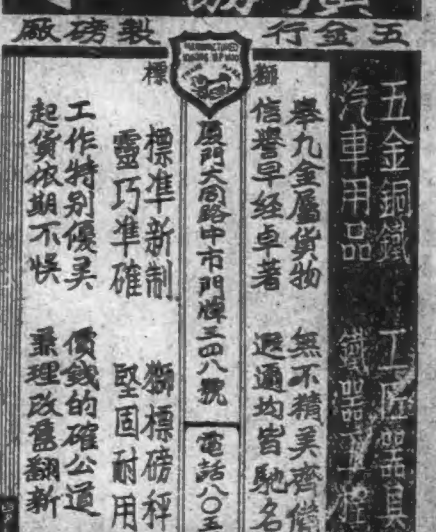 五金行
製磅廠
獅
標
五金銅鐵
工匠器具
汽車用品
鐵器工程
舉凡金屬貨物
無不精美齊備
信譽早經卓著
遐邇均皆馳名
厦門大同路中市門牌三四八號
電話八〇五
標準新制
獅標磅秤
靈巧準確
堅固耐用
工作特别優美
價錢的確公道
起貨依期不悞
兼理改舊翻新